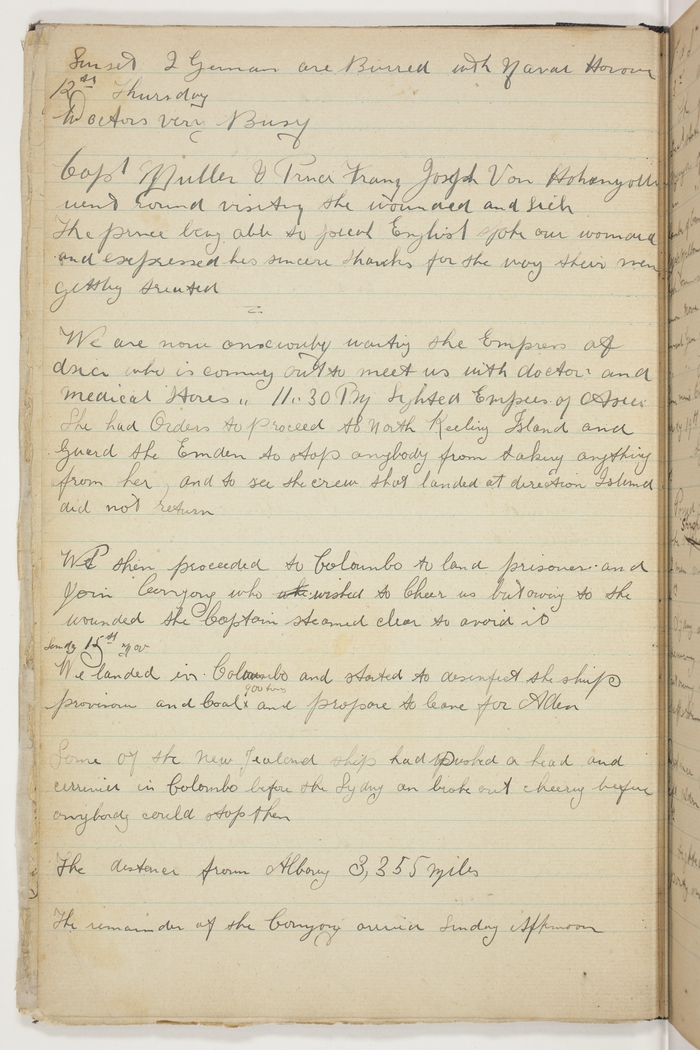 Sunset 2 German are Burred with Naval Honour
12th Thursday
Doctors very Busy
Capt Muller & Prince Franz Joseph Von Hohenzolle
went round visiting the wounded and sick
The prince being able to speak English spoke our wounded
and expressed his sincere thanks for the way their men
getting treated
We are now anxiously waiting the Empress of
Asia who is coming out to meet us with doctors and
medical stores " 11.30 PM Sighted Empress of Asia
She had Orders to proceed to North Keeling Island and
Guard the Emden to stop anybody from taking anything
from her, and to see the crew that landed at direction Island
did not return
We then proceeded to Colombo to land prisoners and
join Convoy who wished to Cheer us but owing to the
wounded the Captain steamed clear to avoid it
Sunday 15th Nov
We landed in Colombo and started to desinfect the ship
900 tons
provision and Coal x and prepare to leave for Aden
Some of the New Zealand ship had pushed a head and
arrived in Colombo before the Sydny an broke out cheering before
anybody could stop then
The distance from Albany 3,355 miles
The remainder of the Convoy arrived Sunday Afternoon